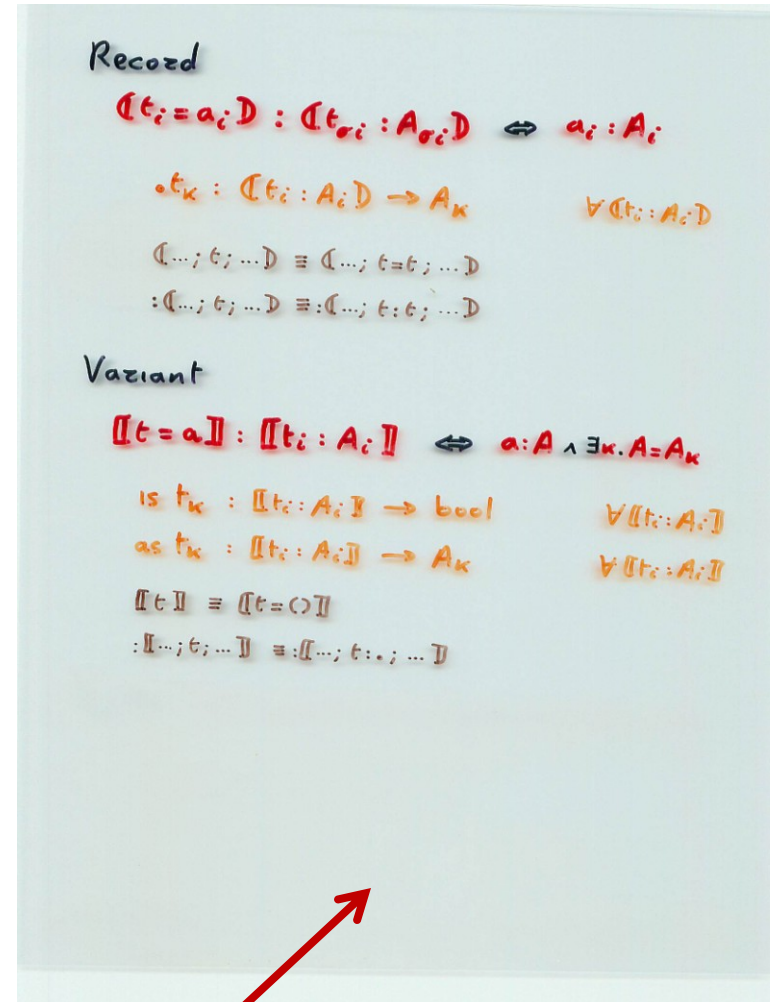 Record
⦅tᵢ = aᵢ⦆ : ⦅t_σᵢ : A_σᵢ⦆ ⇔ aᵢ : Aᵢ
.tₖ : ⦅tᵢ : Aᵢ⦆ → Aₖ ∀⦅tᵢ : Aᵢ⦆
⦅...; t; ...⦆ ≡ ⦅...; t=t; ...⦆
:⦅...; t; ...⦆ ≡ :⦅...; t:t; ...⦆
Variant
⟦t = a⟧ : ⟦tᵢ : Aᵢ⟧ ⇔ a:A ∧ ∃κ. A=Aₖ
is tₖ : ⟦tᵢ : Aᵢ⟧ → bool ∀⟦tᵢ : Aᵢ⟧
as tₖ : ⟦tᵢ : Aᵢ⟧ → Aₖ ∀⟦tᵢ : Aᵢ⟧
⟦t⟧ ≡ ⟦t=()⟧
:⟦...; t; ...⟧ ≡ :⟦...; t:.; ...⟧